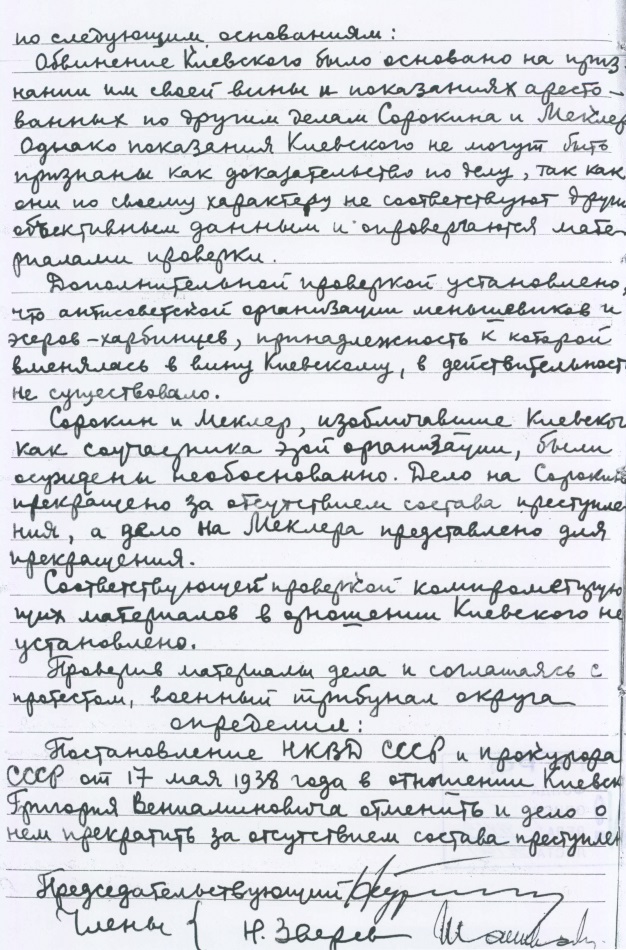 по следующим основаниям:
Обвинение Киевского было основано на приз-
нании им своей вины и показаниях аресто-
ванных по другим делам Сорокина и Меклер
Однако показания Киевского не могут быть
признаны как доказательство по делу, так как
они по своему характеру не соответствуют други
объективным данным и опровергаются мате-
риалами проверки.
Дополнительной проверкой установлено,
что антисоветской организации меньшевиков и
эсеров-харбинцев, принадлежность к которой
вменялась в вину Киевскому, в действительност
не существовало.
Сорокин и Меклер, изобличавшие Киевског
как соучастника этой организации, были
осуждены необоснованно. Дело на Сорокин
прекращено за отсутствием состава преступле
ния, а дело на Меклера представлено для
прекращения.
Соответствующей проверкой компрометирую
щих материалов в отношении Киевского не
установлено.
Проверив материалы дела и соглашаясь с
протестом, военный трибунал округа
определил:
Постановление НКВД СССР и прокурора
СССР от 17 мая 1938 года в отношении Киевск
Григория Вениаминовича отменить и дело о
нем прекратить за отсутствием состава преступлен
Председательствующий
Члены { Н. Зверев